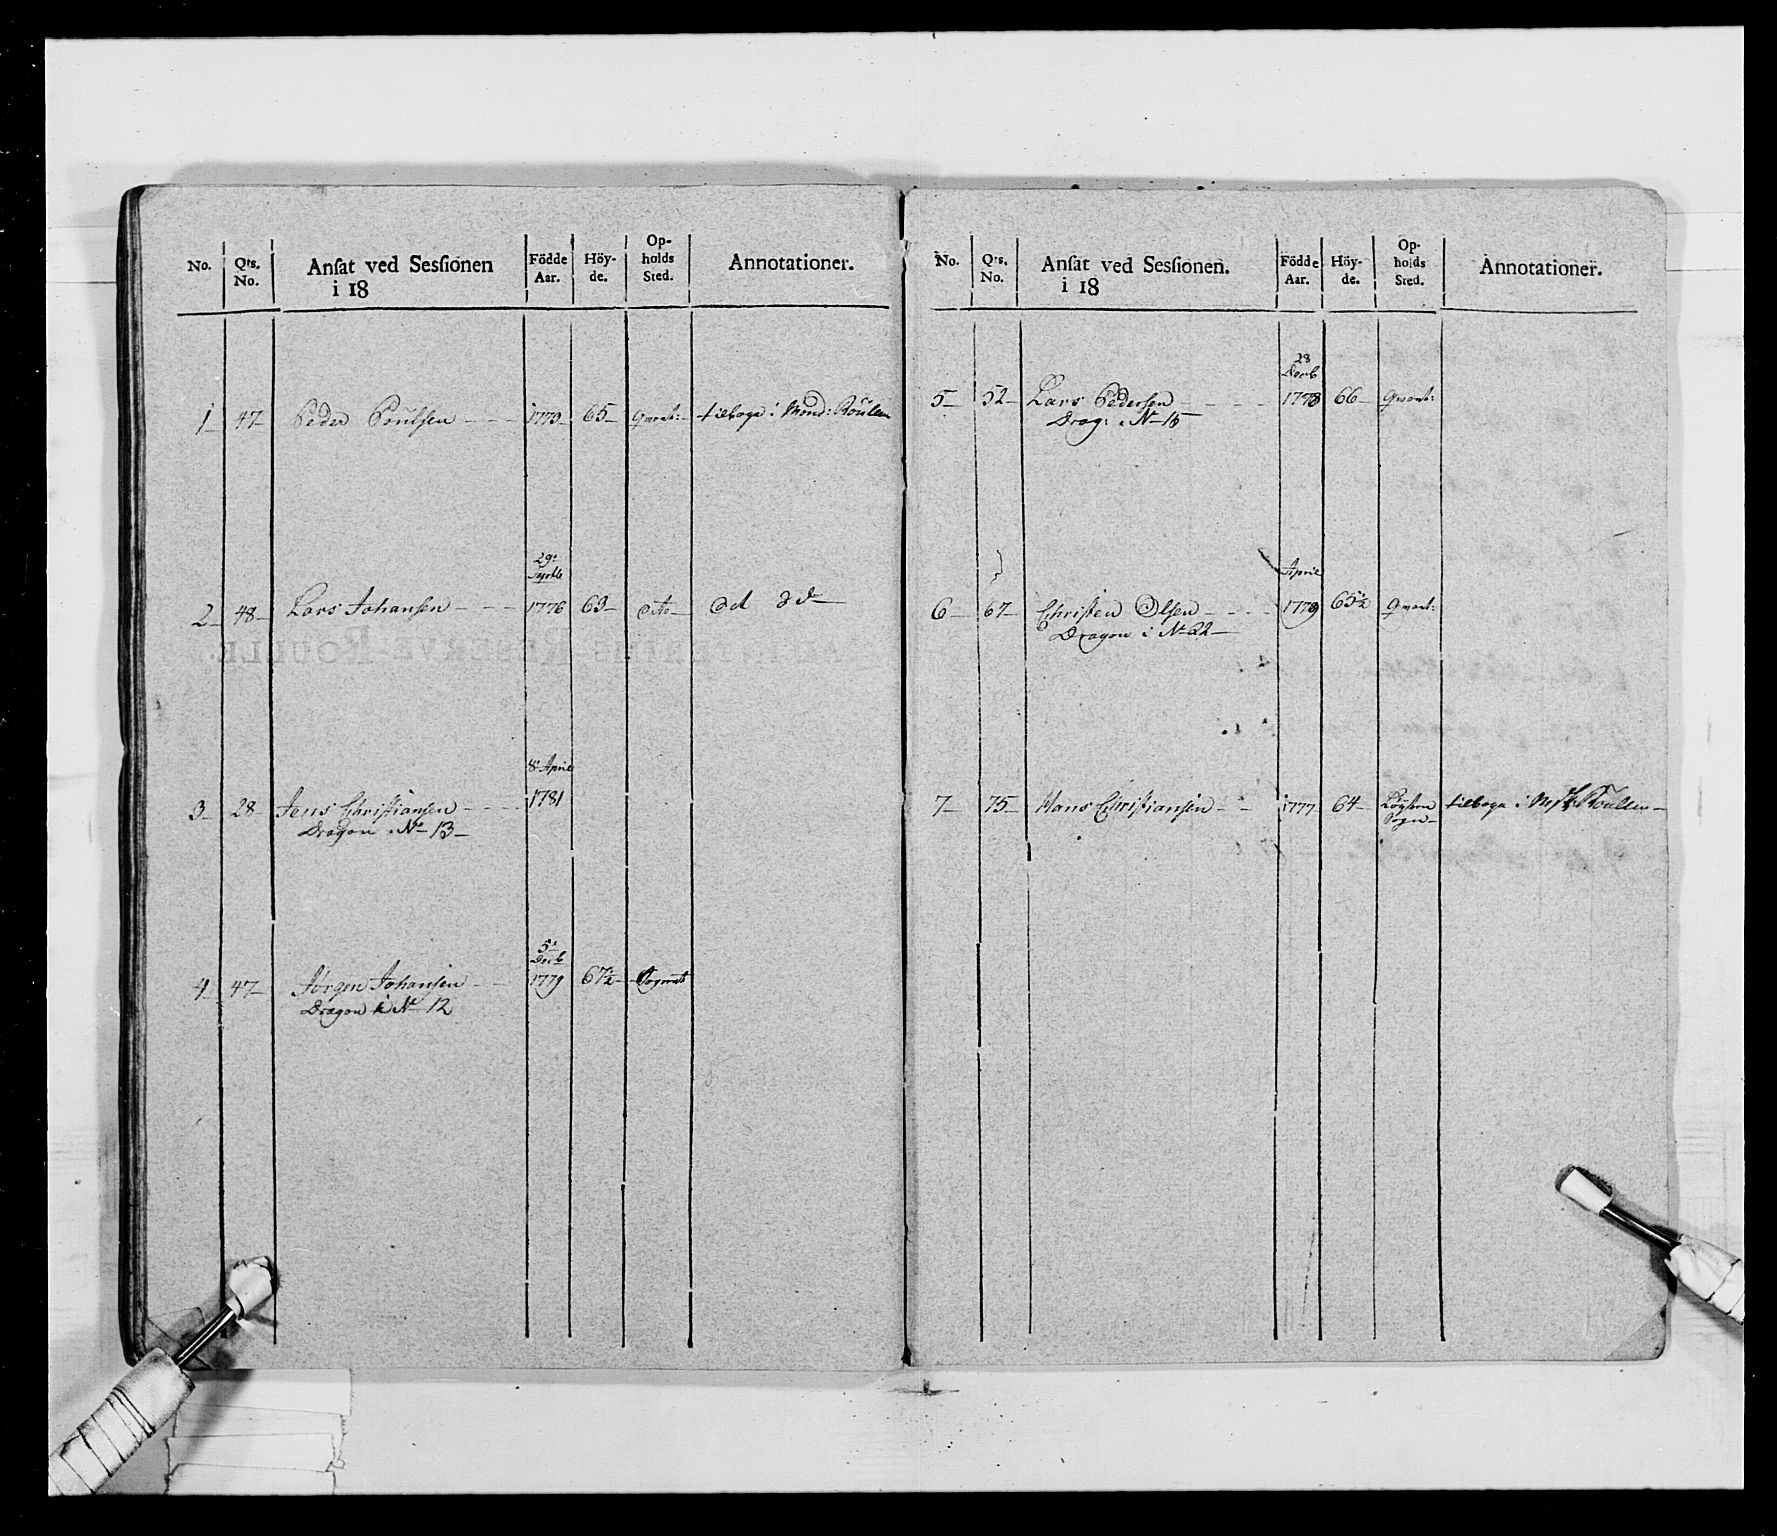 No. Qts. No. Ansat ved Sessionen i 18 Födde Aar. Höy-de. Op-holds Sted. Annotationer.
1 47 Peder Poulsen 1779 65 Qvart: tilbage i Mond: Roullen
29de Septbr
2 48 Lars Johansen 1776 63 dito
8de April
3 28 Jens Christiansen 1781
Dragon No 13
5te Decb
4 47 Jörgen Johansen 1779 67½
Dragon i No 12
No. Qts. No. Ansat ved Sessionen. i 18 Födde Aar. Höy-de. Op-holds Sted. Annotationer.
28 Decb
5 52 Lars Pedersen 1778 66 Qvart:
Drag: No 15
April
6 67 Christen Olsen 1779 65½ Qvart:
Dragon i No 22
7 75 Hans Christiansen 1777 64 Sogn tilbage i Roullen